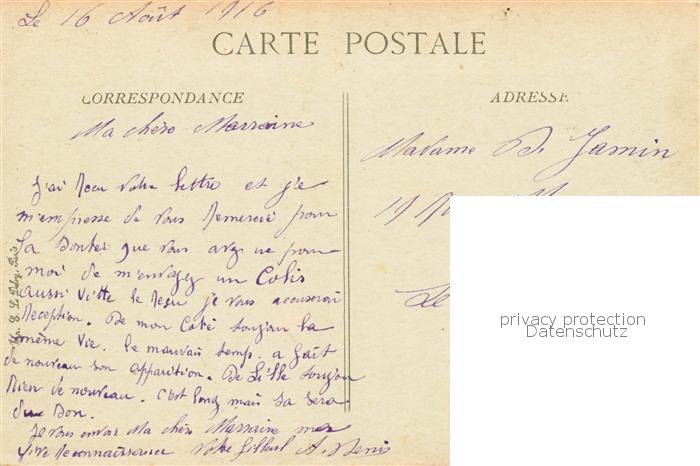 Le 16 Août 1916
CARTE POSTALE
CORRESPONDANCE
ADRESSE
Ma chère Marraine
Madame D. Jamin
J'ai Recu votre lettre et j'e
m'empresse de vous Remercié pour
la Bontés que vous avez ue pour
moi de m'envoyz un Colis
aussi vitte le Resu je vous accuserai
Reception. De mon Coté toujour la
même vie. le mauvais temp. a fait
de nouveau son apparition. De Lille toujour
Rien de nouveau. C'est long mais sa sera
du Bon.
Je vous envoi Ma chère Marraine mes
vive Reconnaissance Votre filleul A. Denis
19
Le
privacy protection
Datenschutz